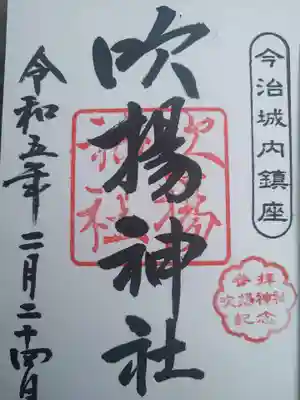 今治城内鎮座
吹揚神社
吹揚
神社
参拝
吹揚神社
記念
令和五年二月二十四日